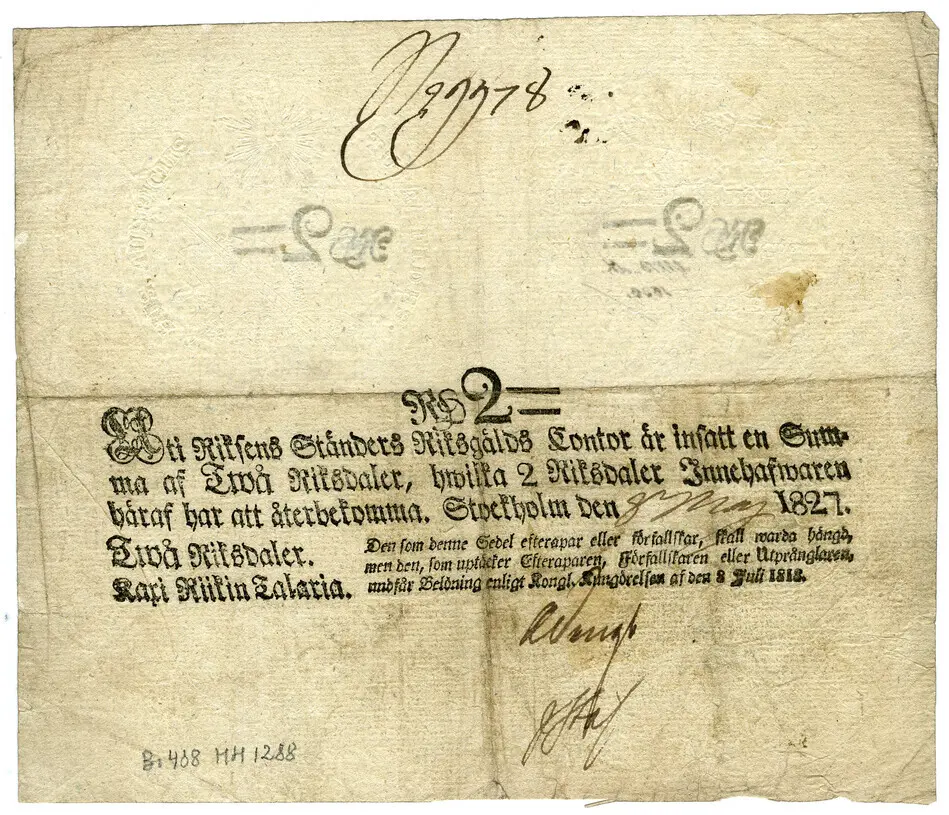 No 29978
RD 2=
Uti Riksens Ständers Riksgälds Contor är insatt en Sum-
ma af Twå Riksdaler, hwilka 2 Riksdaler Innehafwaren
häraf har att återbekomma. Stockholm den 8 May 1827.
Twå Riksdaler.
Kaxi Riikin Talaria.
Den som denne Sedel efterapar eller förfallskar, skall warda hängd,
men den, som uptäcker Efteraparen, Förfallskaren eller Utprånglaren,
undfår Belöning enligt Kongl. Kungörelsen af den 8 Juli 1818.
Br 408 HH 1288